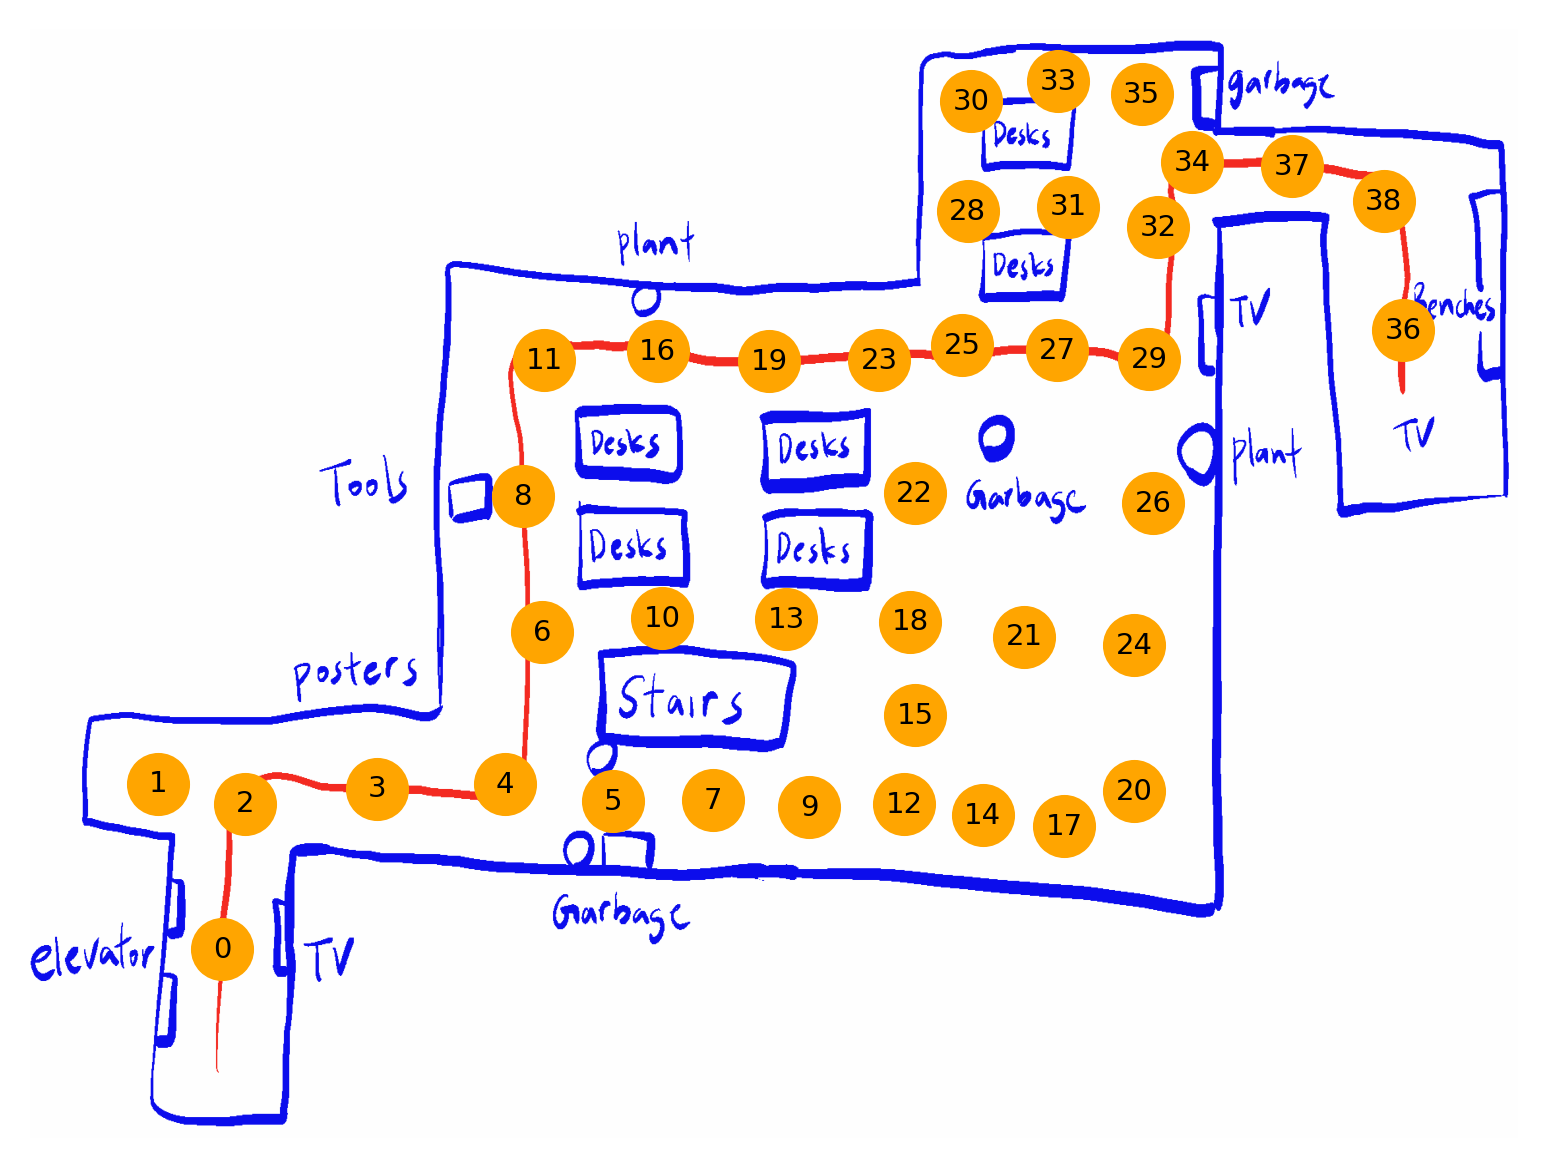 garbage
30 33 35
Desks
34 37
28 31 32 38
plant
Desks
TV
Benches
11 16 19 23 25 27 29 36
Desks Desks
TV
Plant
Tools
8 22 Garbage 26
Desks Desks
6 10 13 18 21 24
posters
Stairs
15
1 2 3 4 5 7 9 12 14 17 20
Garbage
elevator
0
TV